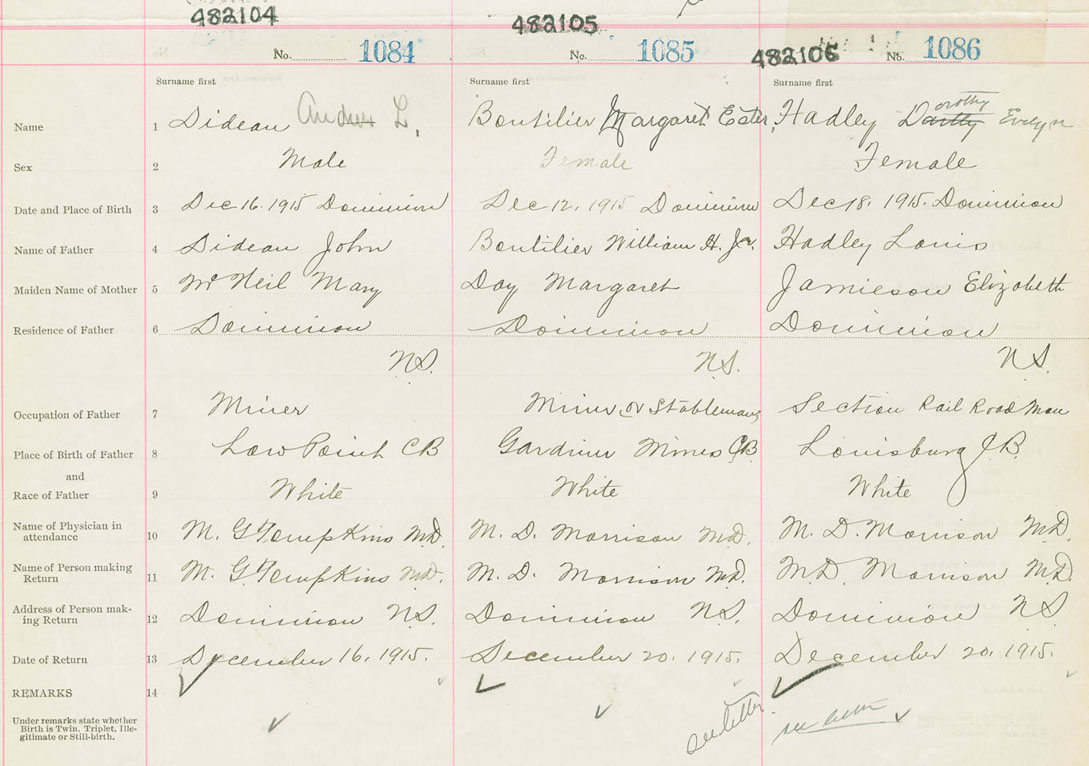 482104 482105 482106
No. 1084 No. 1085 No. 1086
Surname first Surname first Surname first
Name 1 Didean Andrew L. Boutilier Margaret Ester, Hadley Dorothy Evelyn
Sex 2 Male Female Female
Date and Place of Birth 3 Dec 16. 1915 Dominion Dec 12, 1915 Dominion Dec 18. 1915. Dominion
Name of Father 4 Didean John Boutilier William H. Jr. Hadley Louis
Maiden Name of Mother 5 McNeil Mary Day Margaret Jamieson Elizabeth
Residence of Father 6 Dominion Dominion Dominion
N.S. N.S. N.S.
Occupation of Father 7 Miner Miner or Stableman Section Rail Road Man
Place of Birth of Father 8 Low Point CB Gardiner Mines C.B. Louisburg C.B.
and
Race of Father 9 White White White
Name of Physician in
attendance 10 M. G Tompkins M.D. M. D. Morrison M.D. M. D. Morrison M.D.
Name of Person making
Return 11 M. G Tompkins M.D. M. D. Morrison M.D. M.D. Morrison M.D.
Address of Person mak-
ing Return 12 Dominion N.S. Dominion N.S. Dominion N.S.
Date of Return 13 December 16. 1915. December 20. 1915. December 20. 1915.
REMARKS 14
Under remarks state whether
Birth is Twin, Triplet, Ille-
gitimate or Still-birth.
see letter see letter